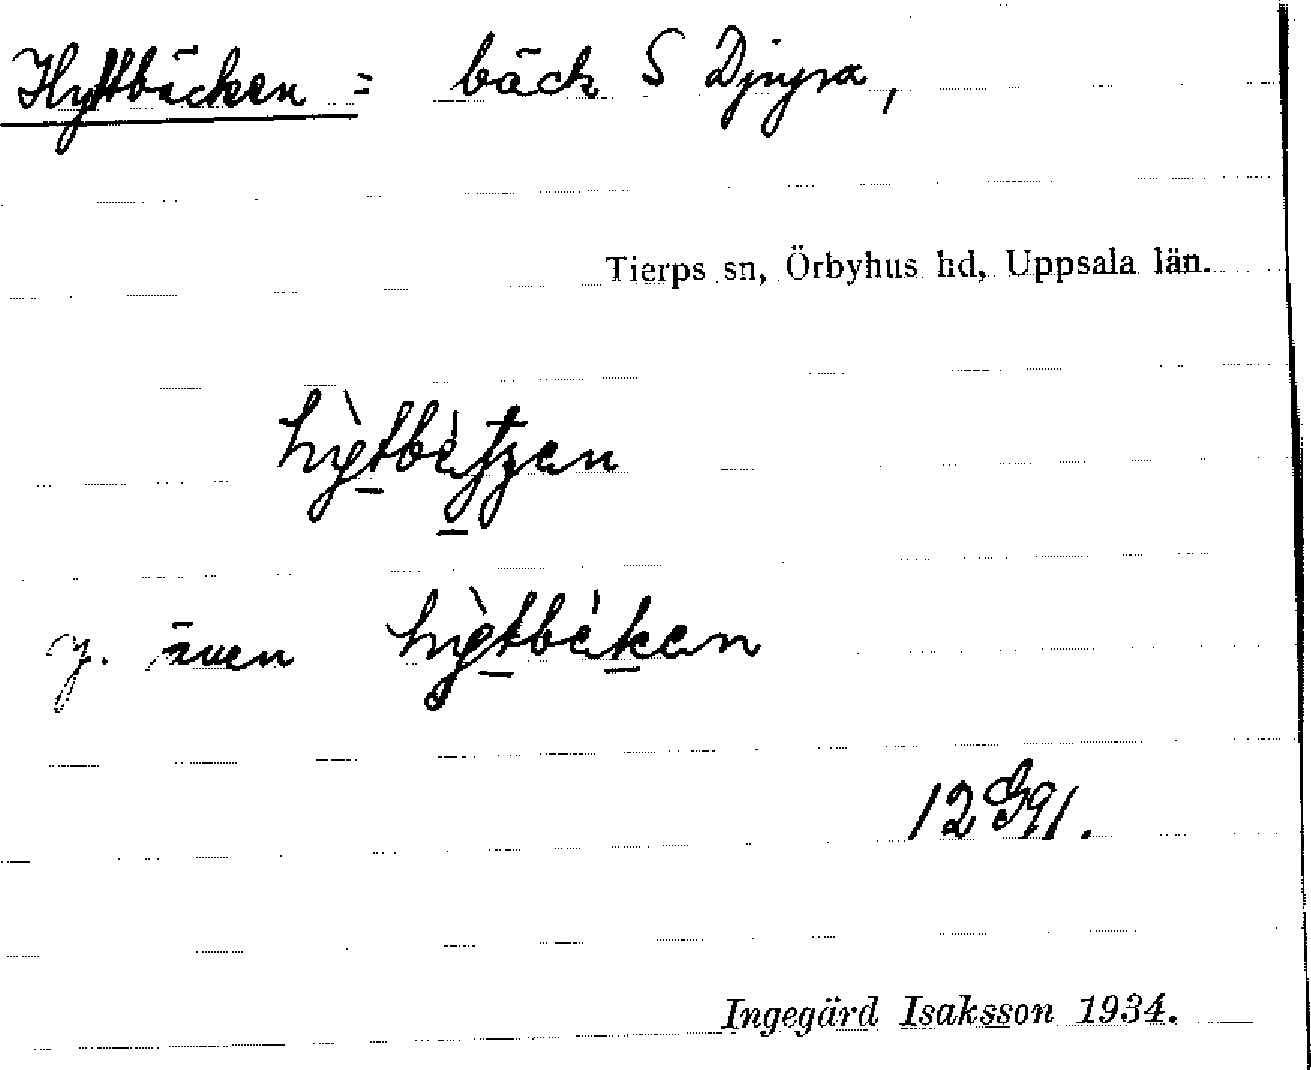 Hyttbäcken = bäck S Djupa,
Tierps sn, Örbyhus hd, Uppsala län.
y. även
12 G 91.
Ingegärd Isaksson 1934.